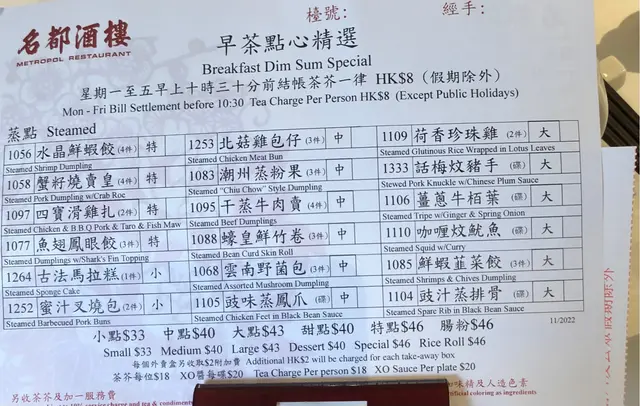 檯號： 經手：
名都酒樓
METROPOL RESTAURANT
早茶點心精選
Breakfast Dim Sum Special
星期一至五早上十時三十分前結帳茶芥一律 HK$8（假期除外）
Mon - Fri Bill Settlement before 10:30 Tea Charge Per Person HK$8 (Except Public Holidays)
蒸點 Steamed
1056 水晶鮮蝦餃(4件) 特
Steamed Shrimp Dumpling
1058 蟹籽燒賣皇(4件) 特
Steamed Pork Dumpling w/Crab Roe
1097 四寶滑雞扎(2件) 特
Steamed Chicken & B.B.Q Pork & Taro & Fish Maw
1077 魚翅鳳眼餃(3件) 特
Steamed Dumplings w/Shark's Fin Topping
1264 古法馬拉糕(1件) 小
Steamed Sponge Cake
1252 蜜汁叉燒包(2件) 小
Steamed Barbecued Pork Buns
1253 北菇雞包仔(3件) 中
Steamed Chicken Meat Bun
1083 潮州蒸粉果(3件) 中
Steamed "Chiu Chow" Style Dumpling
1095 干蒸牛肉賣(4件) 中
Steamed Beef Dumplings
1088 蠔皇鮮竹卷(3件) 中
Steamed Bean Curd Skin Roll
1068 雲南野菌包(3件) 中
Steamed Assorted Mushroom Dumpling
1105 豉味蒸鳳爪(碟) 中
Steamed Chicken Feet in Black Bean Sauce
1109 荷香珍珠雞(2件) 大
Steamed Glutinous Rice Wrapped in Lotus Leaves
1333 話梅炆豬手(碟) 大
Stewed Pork Knuckle w/Chinese Plum Sauce
1106 薑蔥牛栢葉(碟) 大
Steamed Tripe w/Ginger & Spring Onion
1110 咖喱炆魷魚(碟) 大
Steamed Squid w/Curry
1085 鮮蝦韮菜餃(3件) 大
Steamed Shrimps & Chives Dumpling
1104 豉汁蒸排骨(碟) 大
Steamed Spare Rib in Black Bean Sauce
11/2022
小點$33 中點$40 大點$43 甜點$40 特點$46 腸粉$46
Small $33 Medium $40 Large $43 Dessert $40 Special $46 Rice Roll $46
每個外賣盒另收取$2附加費 Additional HK$2 will be charged for each take-away box
茶芥每位$18 XO醬每碟$20 Tea Charge Per person $18 XO Sauce Per plate $20
另收茶芥及加一服務費
味精及人造色素
service charge and tea & condiments
artificial coloring as ingredients